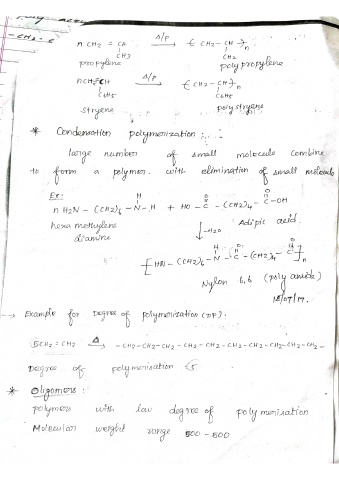 n CH2 = CH Δ/P → { CH2 - CH }n
CH3 CH2
propylene polypropylene
nCH2=CH Δ/P → { CH2 - CH }n
C6H5 C6H5
stryene polystryene
* Condensation polymerization :
large number of small molecule combine
to form a polymer. with elimination of small molecule
Ex:
H O O
n H2N - (CH2)6 - N - H + HO - C - (CH2)4 - C - OH
hexa methylene Adipic acid.
diamine ↓ -H2O
H O O
[ HN - (CH2)6 - N - C - (CH2)4 - C ]n
Nylon 6,6 (poly amide)
18/07/17.
→ Example for Degree of polymerization (DP) :
5CH2 = CH2 Δ → - CH2-CH2-CH2-CH2-CH2-CH2-CH2-CH2-CH2-CH2-
Degree of polymerisation 5
* Oligomers :
polymers with law degree of polymerisation
Molecular weight range 500 - 600